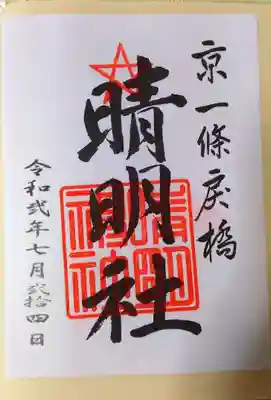 京一條戻橋
晴明社
令和弐年七月弐拾四日